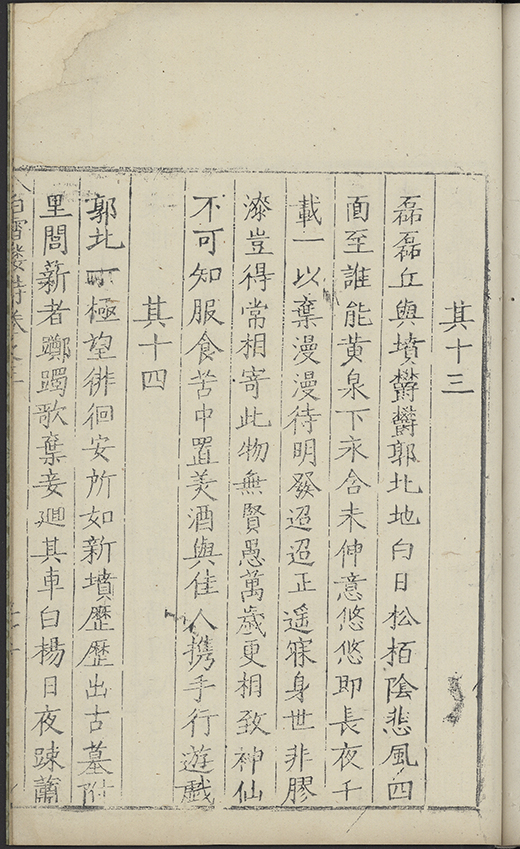 其十三
磊磊丘與墳欝欝郭北地白日松栢陰悲風四
面至誰能黄泉下永含未伸意悠悠即長夜千
載一以棄漫漫待明發迢迢正遥寐身世非膠
漆豈得常相寄此物無賢愚萬歲更相致神仙
不可知服食苦中置美酒與佳人携手行遊戲
其十四
郭北一極望徘徊安所如新墳歷歷出古墓附
里閭薪者躑躅歌棄妾廻其車白楊日夜踈蕭
白雪樓詩卷之